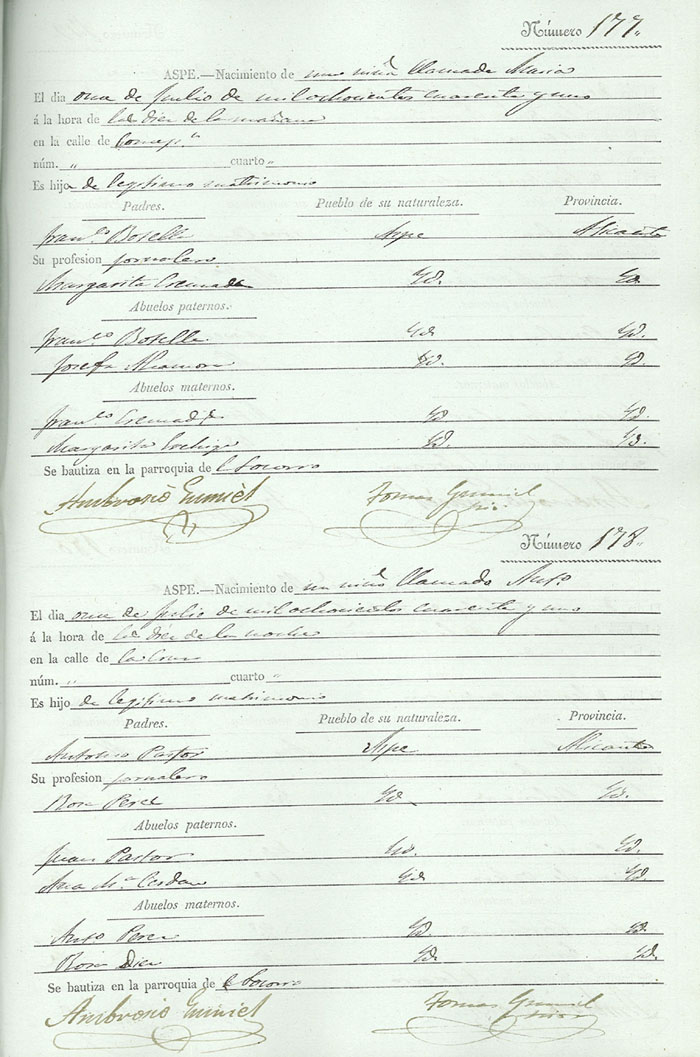 Número 177.
ASPE.—Nacimiento de una niña llamada Maria
El dia once de Julio de mil ochocientos cuarenta y uno
á la hora de las diez de la mañana
en la calle de
núm. „ cuarto „
Es hija de legitimo matrimonio
Padres. Pueblo de su naturaleza. Provincia.
Fran.co Botella Aspe Alicante
Su profesion jornalero
Margarita Cremades Yd. Yd.
Abuelos paternos.
Fran.co Botella Yd. Yd.
Josefa Yd. Yd.
Abuelos maternos.
Fran.co Cremades Yd. Yd.
Margarita Yd. Yd.
Se bautiza en la parroquia del Socorro
Ambrosio Gumiel Tomas Gumiel
Srio.
Número 178.
ASPE.—Nacimiento de un niño llamado Ant.o
El dia once de Julio de mil ochocientos cuarenta y uno
á la hora de las diez de la noche
en la calle de la Cruz
núm. „ cuarto „
Es hijo de legitimo matrimonio
Padres. Pueblo de su naturaleza. Provincia.
Antonio Pastor Aspe Alicante
Su profesion jornalero
Rosa Perez Yd. Yd.
Abuelos paternos.
Juan Pastor Yd. Yd.
Ana M.a Cerdan Yd. Yd.
Abuelos maternos.
Ant.o Perez Yd. Yd.
Rosa Diez Yd. Yd.
Se bautiza en la parroquia del Socorro
Ambrosio Gumiel Tomas Gumiel
Srio.